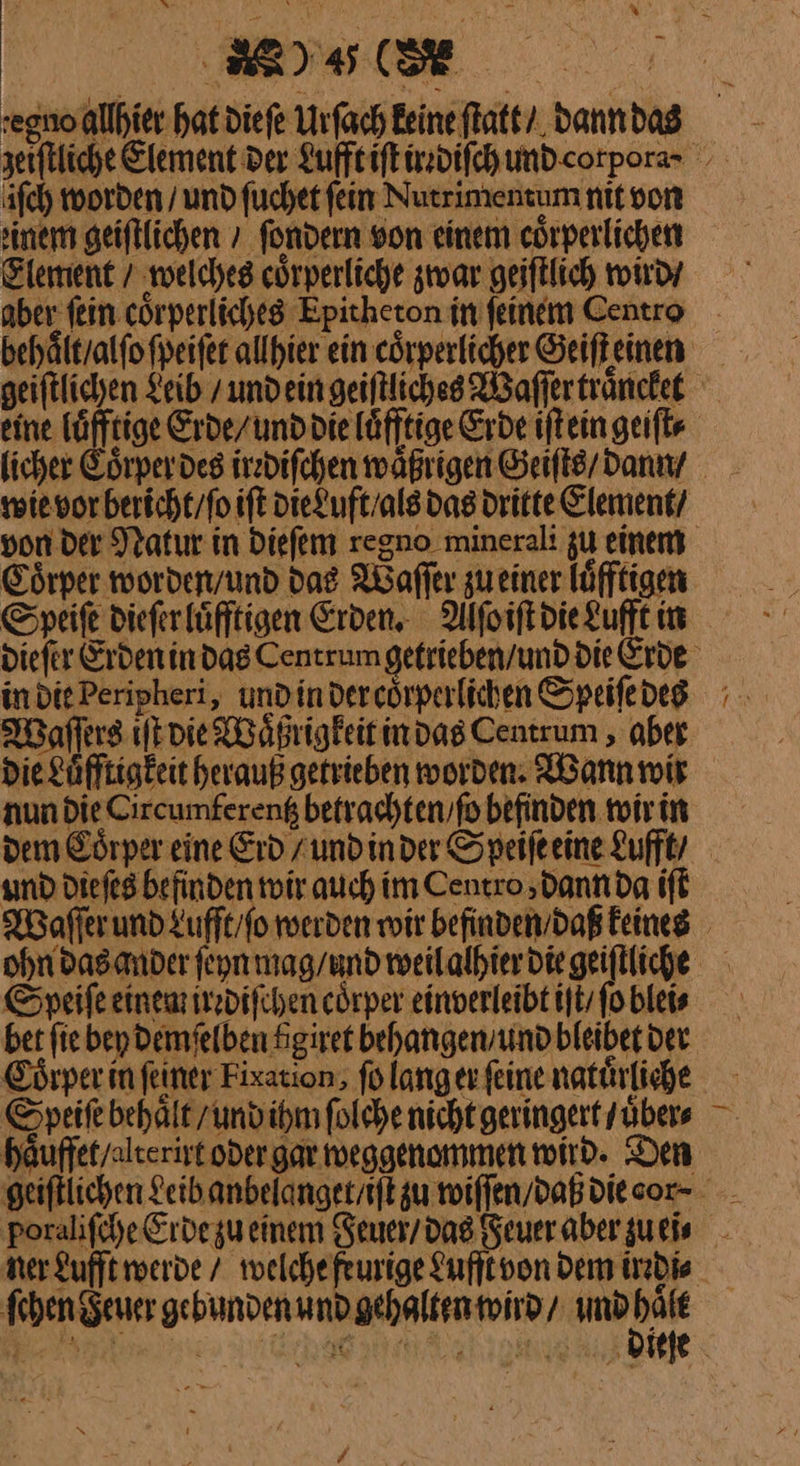 ) 45 (
regno allhier hat dieſe Urſach keine ſtatt / dann das
geiſtliche Element der Lufft iſt irꝛdiſch und corpora-
iſch worden / und ſuchet ſein Nutrimentum nit von
einem geiſtlichen / ſondern von einem coͤrperlichen
Element / welches coͤrperliche zwar geiſtlich wird/
aber ſein coͤrperliches Epitheton in ſeinem Centro
behaͤlt/alſo ſpeiſet allhier ein coͤrperlicher Geiſt einen
geiſtlichen Leib / und ein geiſtliches Waſſer traͤncket
eine luͤfftige Erde/und die luͤfftige Erde iſt ein geiſt⸗
licher Coͤrper des irꝛdiſchen waͤßrigen Geiſts/dann/
wie vor bericht/ſo iſt die Luft/als das dritte Element/
von der Natur in dieſem regno minerali zu einem
Coͤrper worden/und das Waſſer zu einer luͤfftigen
Speiſe dieſer luͤfftigen Erden. Alſo iſt die Lufft in
dieſer Erden in das Centrum getrieben/und die Erde
in die Peripheri, und in der coͤrperlichen Speiſe des
Waſſers iſt die Waͤßrigkeit in das Centrum, aber
die Luͤfftigkeit herauß getrieben worden. Wann wir
nun die Circumferentz betrachten/ſo befinden wir in
dem Coͤrper eine Erd / und in der Speiſe eine Lufft/
und dieſes befinden wir auch im Centro, dann da iſt
Waſſer und Lufft/ſo werden wir befinden/daß keines
ohn das ander ſeyn mag/und weil alhier die geiſtliche
Speiſe einem irꝛdiſchen coͤrper einverleibt iſt/ ſo blei⸗
bet ſie bey demſelben figiret behangen/und bleibet der
Coͤrper in ſeiner Fixation, ſo lang er ſeine natuͤrliche
Speiſe behaͤlt / und ihm ſolche nicht geringert / uͤber⸗
haͤuffet/alterirt oder gar weggenommen wird. Den
geiſtlichen Leib anbelanget/iſt zu wiſſen/daß die cor-
poraliſche Erde zu einem Feuer/das Feuer aber zu ei⸗
ner Lufft werde / welche feurige Lufft von dem irꝛdi⸗
ſchen Feuer gebunden und gehalten wird / und haͤlt
dieſe